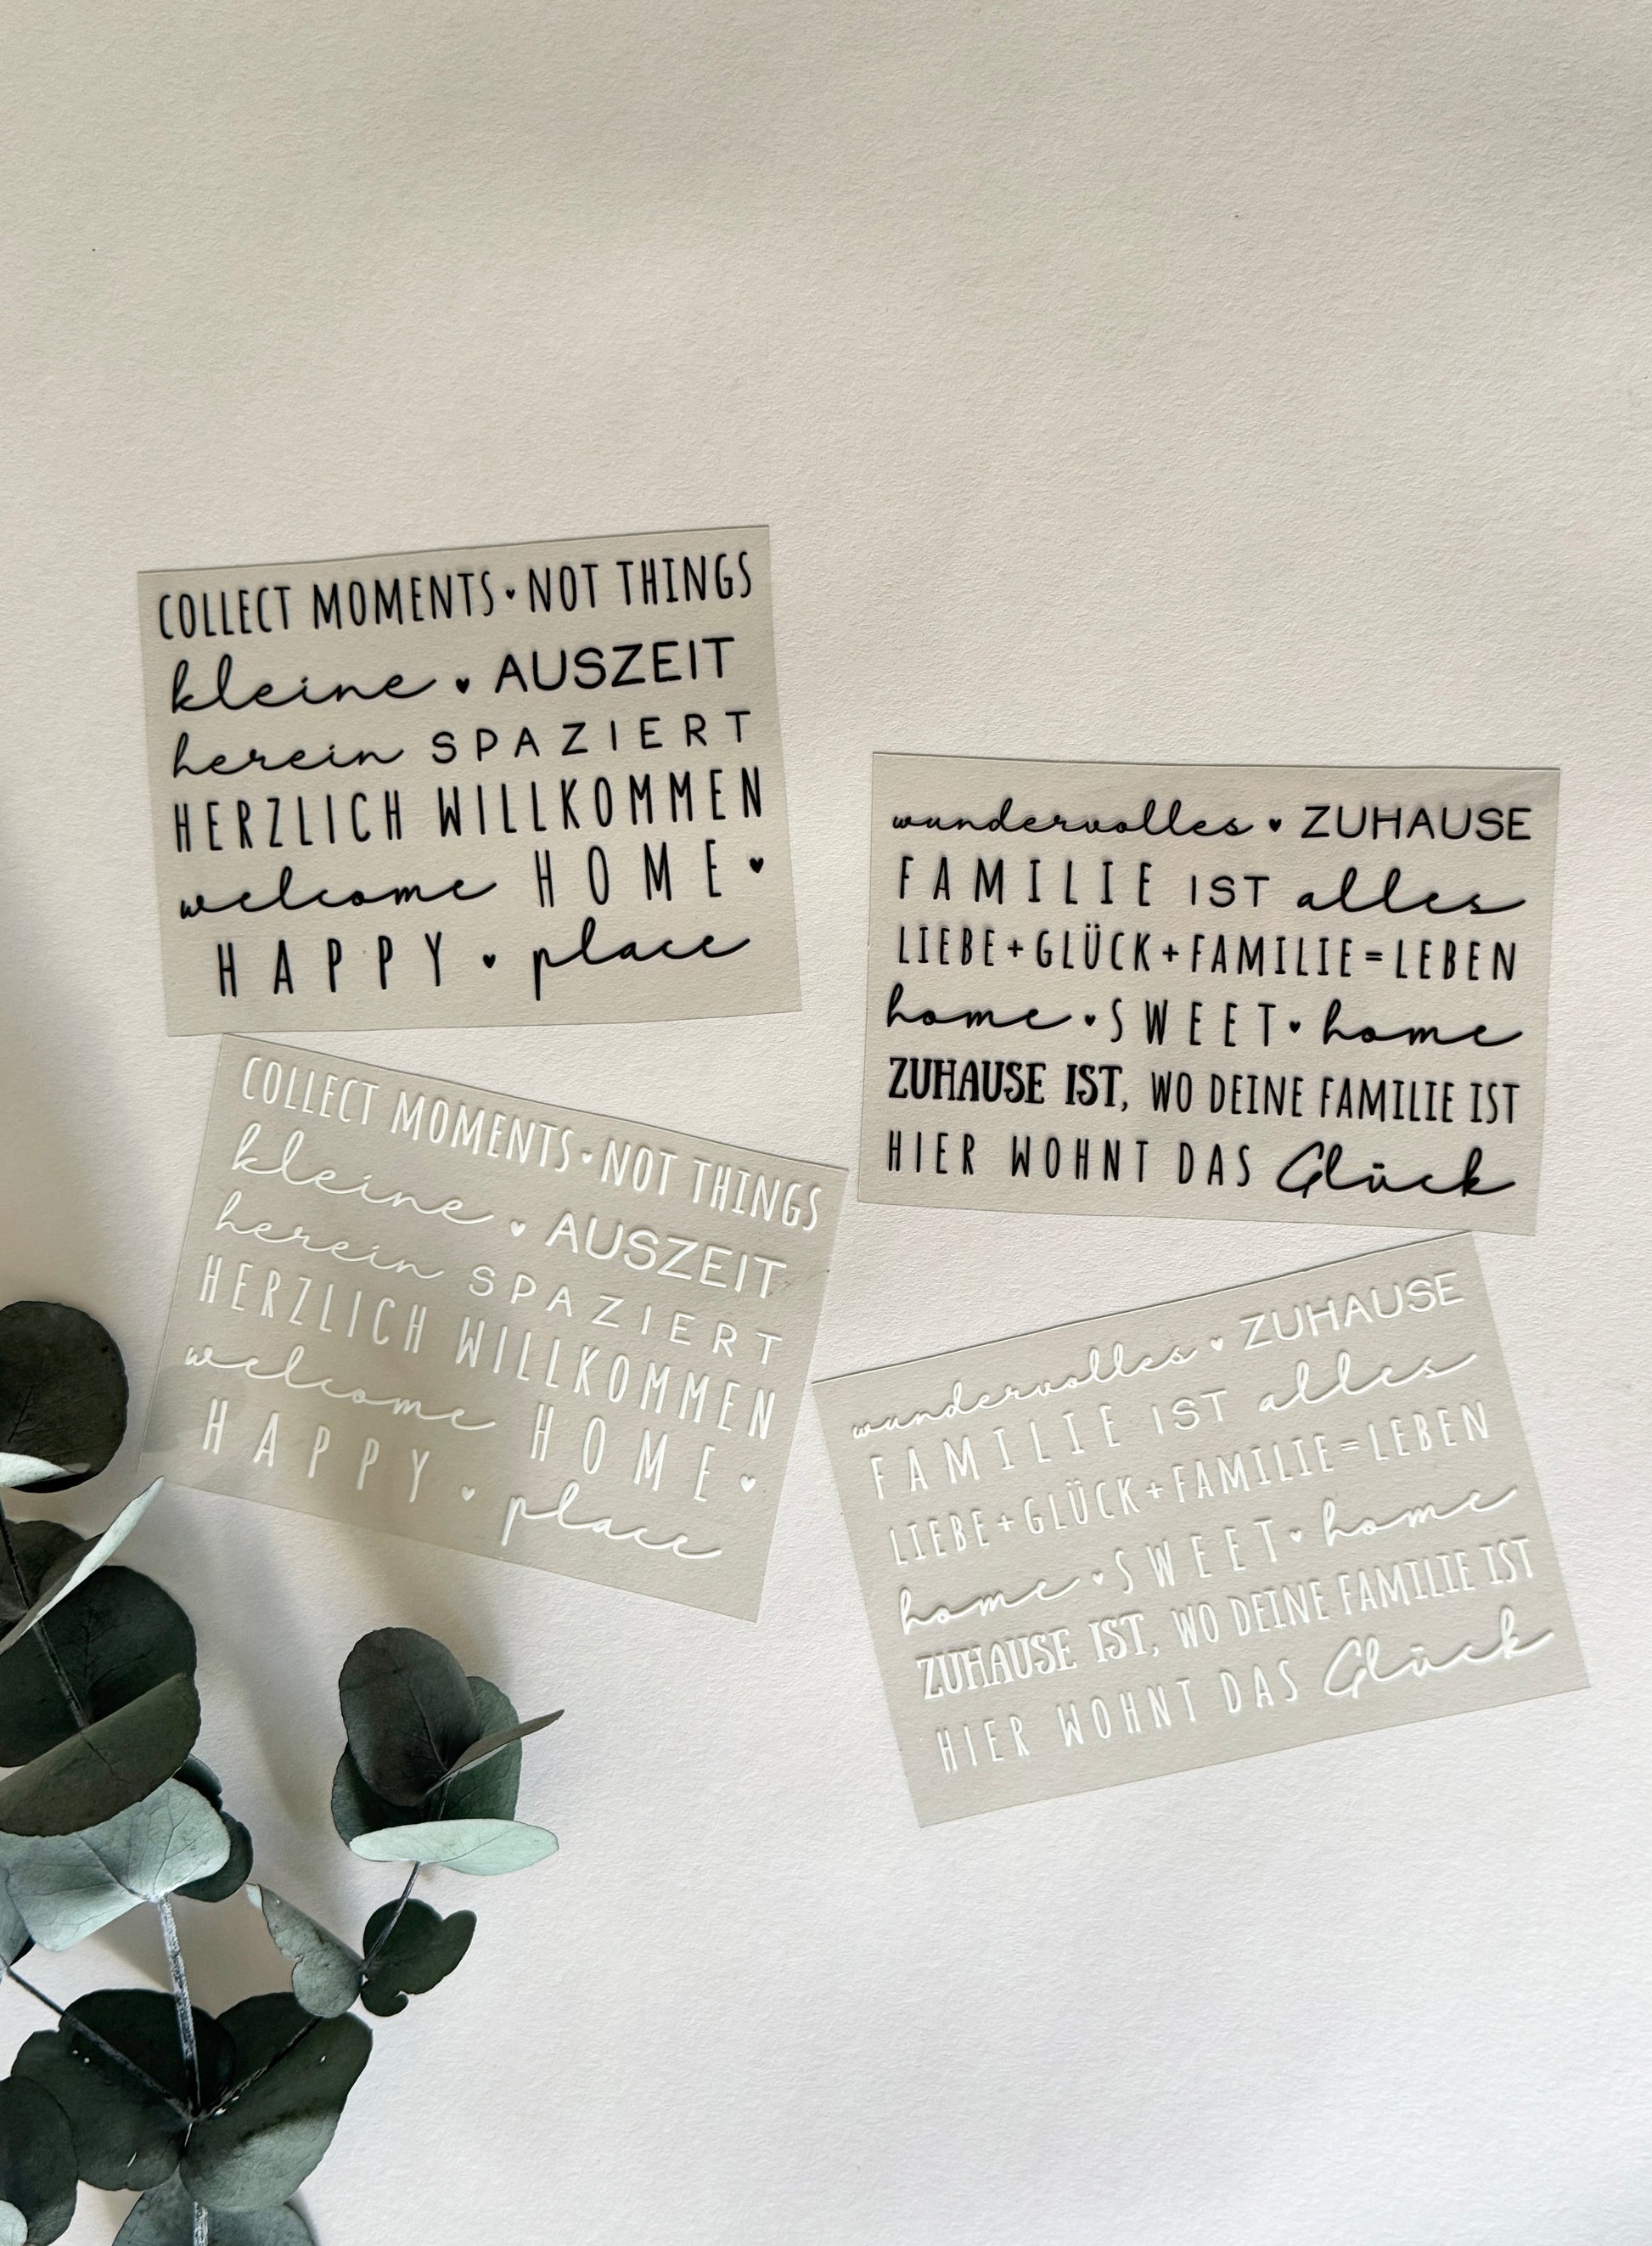 COLLECT MOMENTS♥NOT THINGS
kleine ♥ AUSZEIT
herein SPAZIERT
HERZLICH WILLKOMMEN
welcome HOME♥
HAPPY ♥ place
wundervolles ♥ ZUHAUSE
FAMILIE IST alles
LIEBE+GLÜCK+FAMILIE=LEBEN
home♥SWEET♥home
ZUHAUSE IST, WO DEINE FAMILIE IST
HIER WOHNT DAS Glück
COLLECT MOMENTS♥NOT THINGS
kleine ♥ AUSZEIT
herein SPAZIERT
HERZLICH WILLKOMMEN
welcome HOME♥
HAPPY ♥ place
wundervolles ♥ ZUHAUSE
FAMILIE IST alles
LIEBE+GLÜCK+FAMILIE=LEBEN
home♥SWEET♥home
ZUHAUSE IST, WO DEINE FAMILIE IST
HIER WOHNT DAS Glück